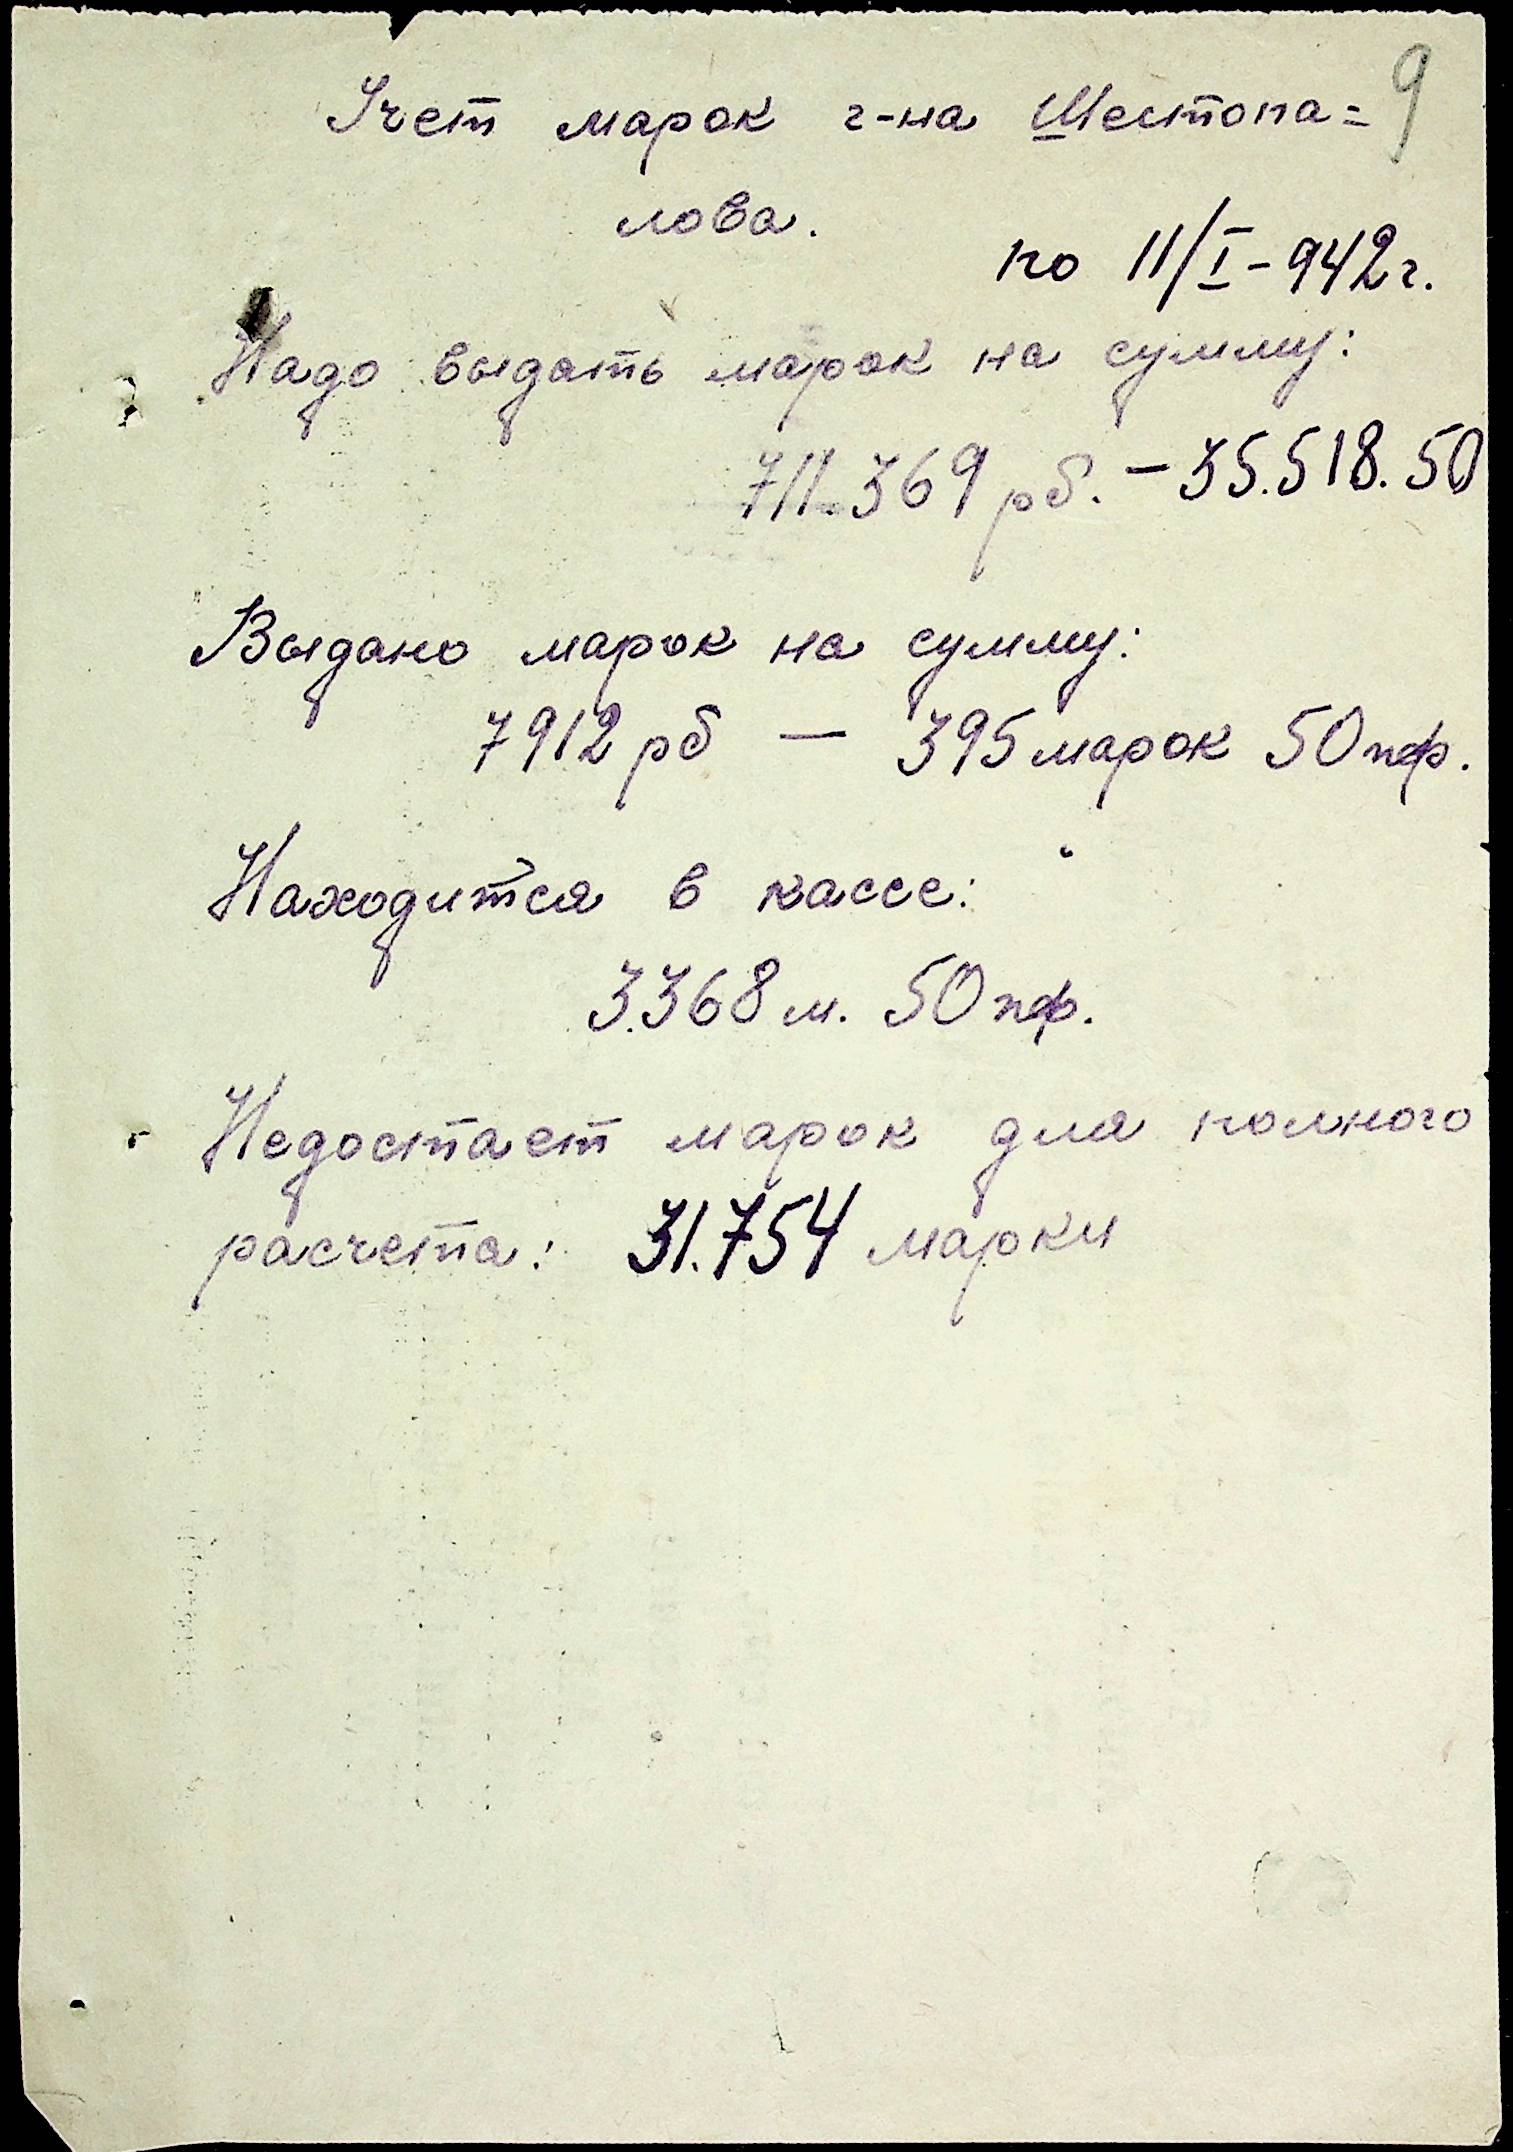 9
Учет марок г-на Шестопа=
лова.
по 11/I-942г.
Надо выдать марок на сумму:
711.369 рб. - 35.518.50
Выдано марок на сумму:
7912 рб — 395 марок 50 пф.
Находится в кассе:
3.368 м. 50 пф.
Недостает марок для полного
расчета: 31.754 марки